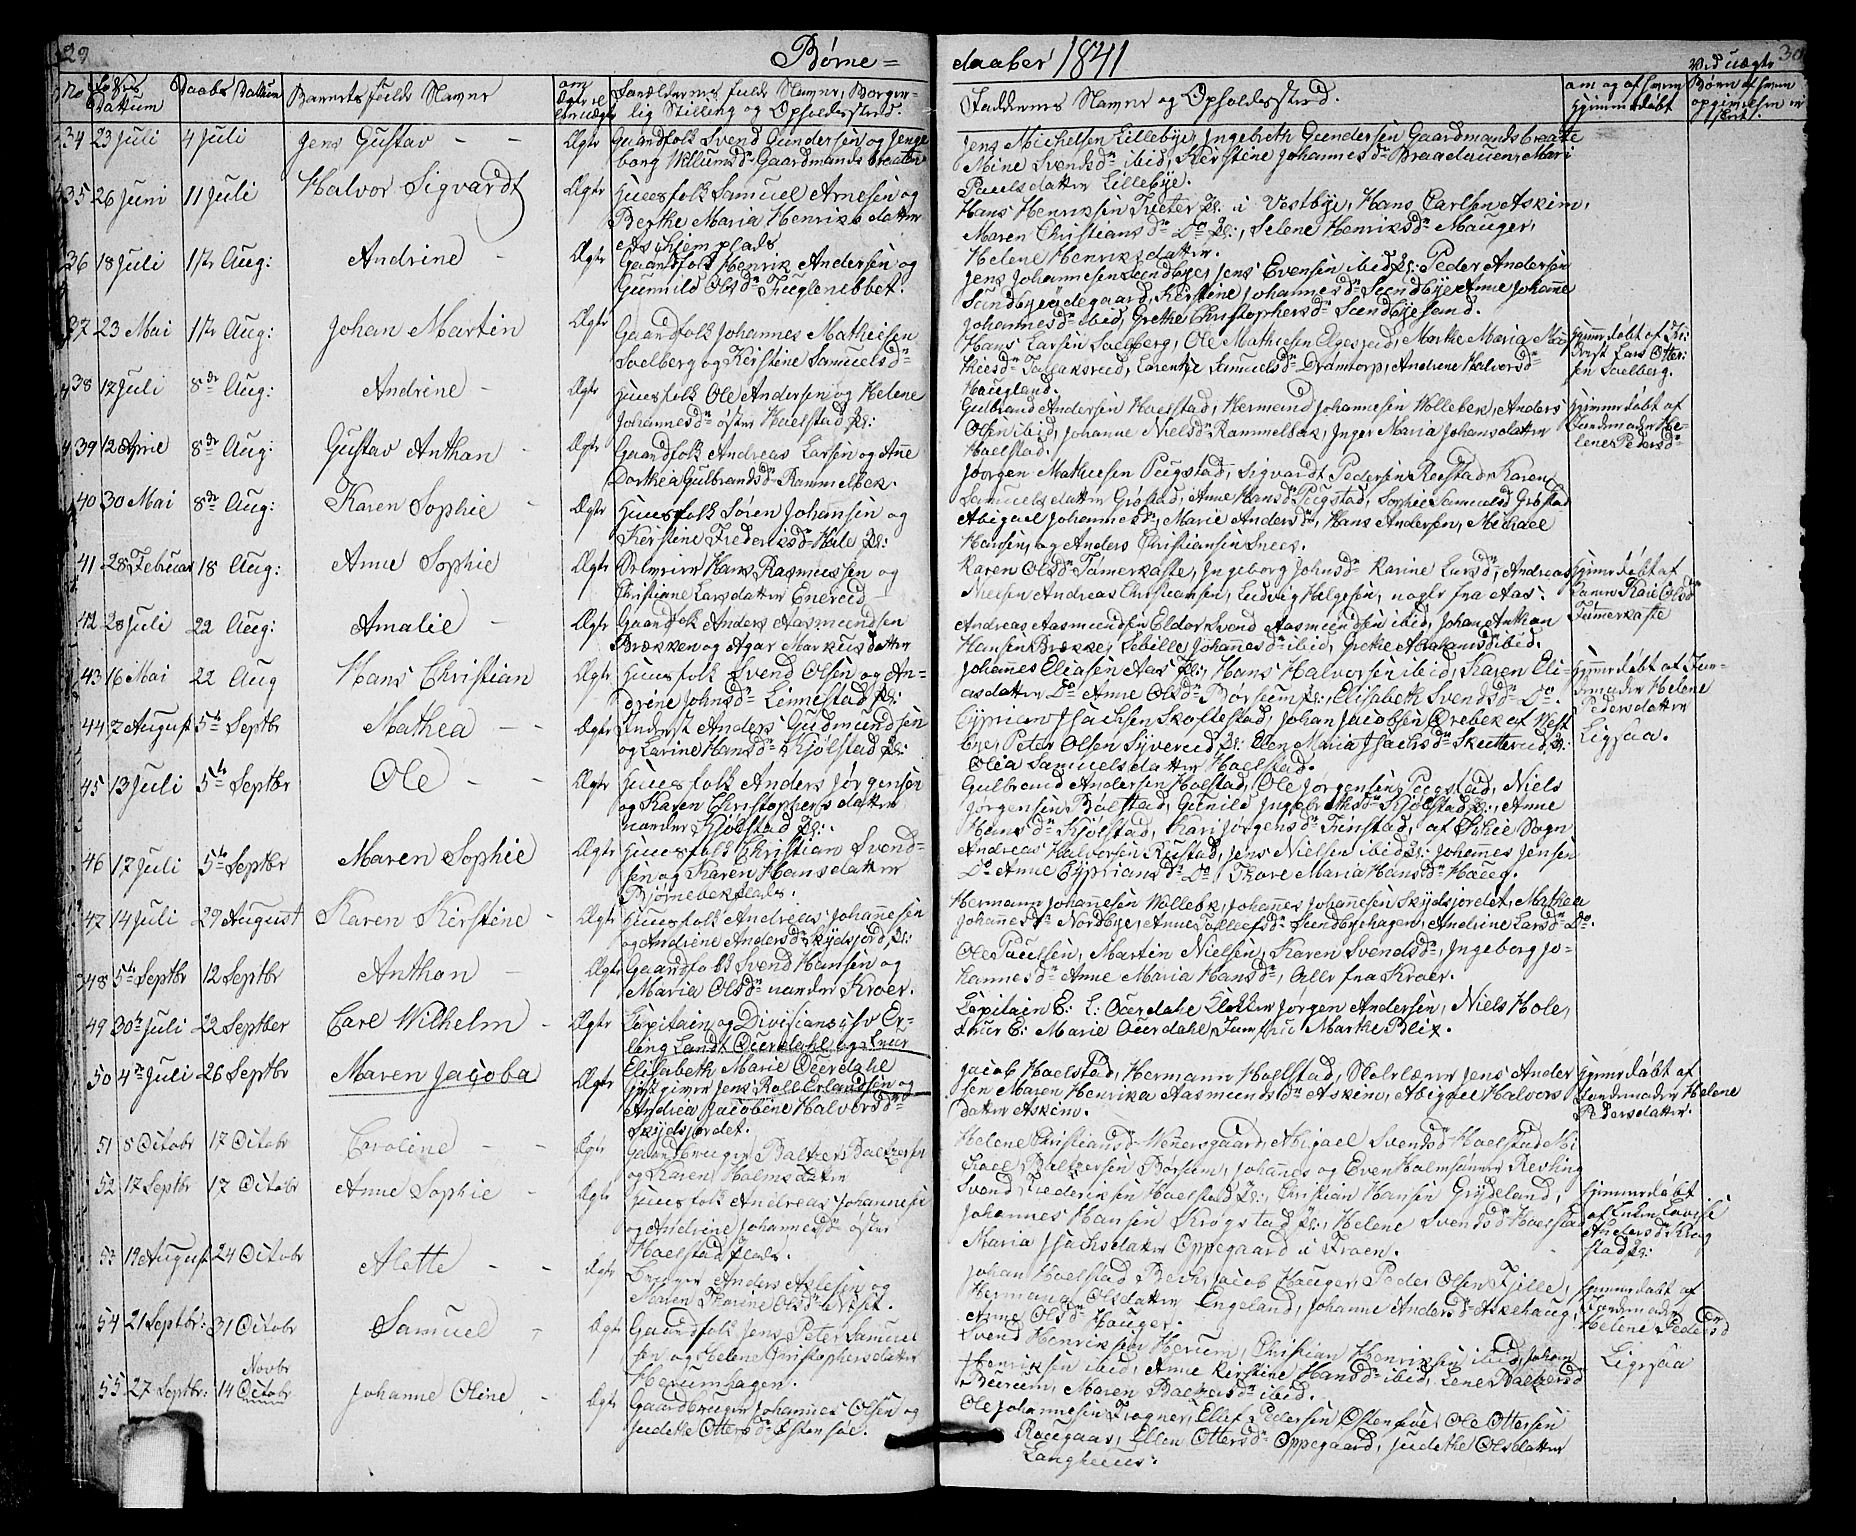 29
Børne=
daaber 1841
30
No
Fødsels Dattum
Daabs Dattum
Barnets fulde Navne
om Ægte el. uægte
Foreldrenes fulde Navne, Borgerlig Stilling og Opholdssted.
Faddernes Navne og Opholdssted.
om og af hvem hjemmedøbt
Ved uægte Børn af hvem opgivelsen er skeet.
34 23 Juli 4 Juli Jens Gustav – – Ægte
Gaardfolk Svend Gundersen og Inge
borg Willumsd. Gaardmandsbraaten
Jens Michelsen Lillebye, Ingebreth Gundersen Gaardmandsbraate
Mine Svendsd. ibid, Kerstine Johannesd. Braadauen, Mari
Paulsdatter Lillebye.
35 26 Juni 11 Juli Halvor Sigvardt Ægte
Huusfolk Samuel Arnesen og
Berthe Maria Henriksdatter
Askiemplads
Hans Henriksen Tveter Pl: i Vestbye, Hans Carlsen Askim,
Maren Christiansd. Do Pl:, Selene Henriksd. Hauger,
Helene Henriksdatter.
36 18 Juli 1ste Aug: Andrine – Ægte
Gaardfolk Henrik Andersen og
Gunnild Olsd. Fuglenebbet.
Jens Johannesen Sundbye, Jens Evensen ibid Pl: Peder Andersen
Sundbyeødegaard, Kerstine Johannesd. Sundbye, Anne Johanne
Johannesd. ibid, Grethe Christophersd. Sundbyesand.
37 23 Mai 1ste Aug: Johan Martin Ægte
Gaardfolk Johannes Mathiesen
Solberg og Kerstine Samuelsd.
Hans Larsen Solberg, Ole Mathiesen Elgesjud, Marthe Maria Ma
thiesd. Taraldsrud, Larentze Samuelsd. Drømtorp, Andrine Halvorsd.
Haugland.
hjemmedøbt af In
derst Lars Otter
sen Solberg.
38 12 Juli 8de Aug: Andrine – Ægte
Huusfolk Ole Andersen og Helene
Johannesd. øster Haelstad Pl:
Gulbrand Andersen Haelstad, Hermand Johannesen Wollebek, Anders
Olsen ibid, Johanne Nielsd. Rammelbek, Inger Maria Johansdatter
Haelstad.
hjemmedøbt af
Jordemoder He-
lene Pedersd.
39 12 April 8de Aug: Gustav Anthan – Ægte
Gaardfolk Andreas Larsen og Ane
Dorthea Gulbrandsd. Rammelbek.
Jørgen Mathiesen Pugstad, Sigvardt Pedersen Riestad, Karen
Samuelsdatter Grøstad, Anne Hansd. Pugstad, Sophie Samuelsd Grøstad
40 30 Mai 8de Aug: Karen Sophie – Ægte
Huusfolk Søren Johansen og
Kerstine Frederiksd. Hole Pl:
Abigael Johannesd., Marie Andersd., Hans Andersen, Michael
Hansen, og Anders Christiansen Snees.
41 28 Februar 18 Aug: Anne Sophie Ægte
Hans Rasmussen og
Christiane Larsdatter Enerud
Karen Olsd. Tømerkaste, Ingeborg Johnsd. Karine Larsd., Andreas
Nielsen Andreas Christiansen, Ludvig Helgesen, nogle fra Aas.
hjemmedøbt af
Karen Kari Olsd
Tømerkaste
42 28 Juli 22 Aug: Amalie – Ægte
Gaardfolk Anders Aasmundsen
Brækken og Agar Markusdatter
Andreas Aasmundsen Eldor Svend Aasmundsen ibid, Johan Anthon
Hansen Brække, Sibille Johannesd. ibid, Grethe Abrahamsd. ibid.
43 16 Mai 22 Aug Hans Christian Ægte
Huusfolk Svend Olsen og An-
drine Johnsd. Linnestad Pl:
Johannes Eliasen Aas Pl:, Hans Halvorsen ibid, Karen Eli-
asdatter Do Anne Olsd. Borsum Pl: Elisabeth Svendsd. Do.
hjemmedøbt af Jor-
demoder Helene
Pedersdatter
44 2 August 5te Septbr Mathea – Ægte
Inderst Anders Gudmundsen
og Karine Hansd. Kjølstad Pl:
Cyprian Isachsen Skoftestad, Johan Jacobsen Ørebek af Vest
bye, Peter Olsen Syverud Pl: Elen Maria Isachsd. Skutterud Pl:
Olia Samuelsdatter Haelstad.
Ligesaa.
45 13 Juli 5te Septbr Ole – – Ægte
Huusfolk Anders Jørgensen
og Karen Christophersdatter
nordre Kjølstad Pl:
Gulbrand Andersen Holstad, Ole Jørgensen Pugstad, Niels
Jørgensen Bølstad, Gunild Ingebrethsd. Kjølstad Pl:, Anne
Hansd. Kjølstad, Kari Jørgensd. Finstad, af Skie Sogn
46 17 Juli 5te Septbr Maren Sophie Ægte
Huusfolk Christian Svend-
sen og Karen Hansdatter
Bjørnebekplads.
Andreas Halvorsen Rustad, Jens Nielsen ibid Pl: Johannes Jensen
Do Anne Cypriansd. Do, Thore Maria Hansd. Haug.
47 14 Juli 29 August Karen Kirstine – Ægte
Huusfolk Andreas Johannesen
og Andrine Andersd. Skydsjord Pl:
Hermann Johannesen Wollebek, Johannes Johannesen Skydsjordet, Mathea
Johannesd. Nordbye, Anne Tollefsd. Sundbyehagen, Andrine Larsd. Do.
48 5te Septbr 12 Septbr Anthon – Ægte
Gaardfolk Svend Hansen og
Maria Olsd. nordre Kroer.
Ole Paulsen, Martin Nielsen, Karen Svendsd., Ingeborg Jo-
hannesd. Anne Maria Hansd., alle fra Kroer.
49 30te Juli 22 Septber Carl Wilhelm – Ægte
Capitain og Divisions Er-
ling Landt Ouerdahl og Frue
Elisabeth Marie Ouerdahl
Capitain E: L: Ouerdahl Klokker Jørgen Andersen, Niels Hole,
Frue E: Marie Ouerdahl, Jomfru Marthe Blix.
50 4de Juli 26 Septbr Maren Jacoba Ægte
Jens Roll Erlandsen og
Andrea Jacobine Halvorsd.
Skydsjordet.
Jacob Haelstad, Hermann Haelstad, Skolelærer Jens Ander
sen Maren Henrika Aasmundsd. Askim, Abigael Halvors
datter Askim.
hjemmedøbt af
Jordemoder Helene
Pedersdatter.
51 8 Octobr 17 Octobr Caroline – – Ægte
Gaardbruger Baltzer Baltzersen
og Karen Holmsdatter
Helene Christiansd. Nenersgaard, Abigael Svendsd. Haelstad Mi
chael Baltzersen Børsum, Johannes og Even Holmsønner Revling
52 17 Septbr 17 Octobr Anne Sophie – Ægte
Huusfolk Andreas Johannesen
og Andrine Johannesd. øster
Haelstad Plads.
Svend Frederiksen Haelstad Pl:, Christian Hansen Grydeland,
Johannes Hansen Krogstad Pl:, Helene Svendsd. Haelstad
Maria Isachsdatter Oppegaard i Froen.
hjemmedøbt
af Enken Lovise
Andersd. Krog
stad Pl:
53 19 August 24 Octobr Alette – – Ægte
Bruger Anders Axlesen og
Maren Karine Olsd. Wiset.
Johan Haelstad Berk, Jacob Hauger, Peder Olsen Fjille,
Hermana Olsdatter Engeland, Johanne Andersd. Askehaug,
Anne Olsd. Hauger.
hjemmedøbt af
Jordemoder
Helene Pedersd
54 21 Septbr: 31 Octobr Samuel – Ægte
Gaardfolk Jens Peter Samuel
sen og Helene Christophersdatter
Herumhagen.
Svend Henriksen Herum, Christian Henriksen ibid, Johan
Henriksen ibid, Anne Kirstine Hansd. ibid, Lene Baltzersd
Buerum, Maren Baltzersd. ibid.
Ligesaa
55 27 Septbr: 14 Octobr Novbr Johanne Oline – Ægte
Gaardbruger Johannes Olsen og
Judithe Ottersd. Østensøe.
Ole Johannesen Frogner, Ellef Pedersen Østensøe, Ole Ottersen
Raugaas, Ellen Ottersd. Oppegaard, Judithe Olsdatter
Langhuus.